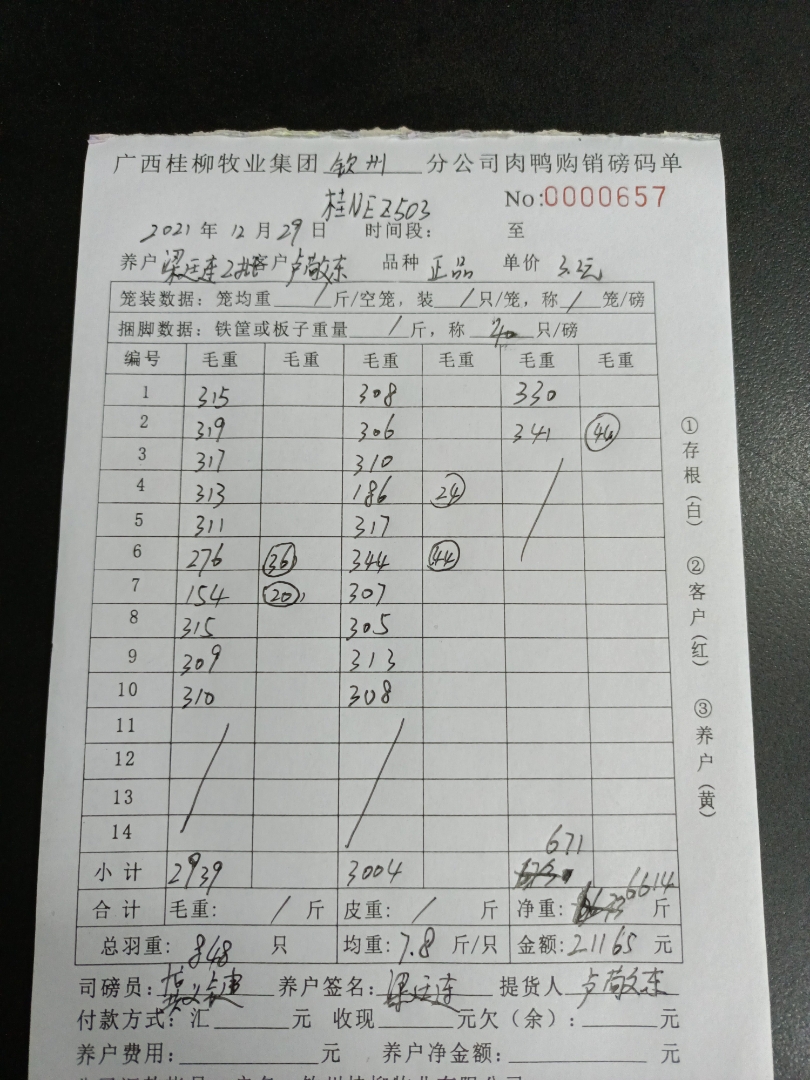 广西桂柳牧业集团 钦州 分公司肉鸭购销磅码单
桂NEZ503 No:0000657
2021年 12月 29日 时间段: 至
养户 梁廷连2批 客户 卢敬东 品种 正品 单价 3.2元
笼装数据: 笼均重 / 斤/空笼, 装 / 只/笼, 称 / 笼/磅
捆脚数据: 铁筐或板子重量 / 斤, 称 40 只/磅
编号 毛重 毛重 毛重 毛重 毛重 毛重
1 315 308 330
2 319 306 341 44
3 317 310
4 313 186 24
5 311 317
6 276 36 344 44
7 154 20 307
8 315 305
9 309 313
10 310 308
11
12
13
14
671
小计 2939 3004
合计 毛重: / 斤 皮重: / 斤 净重: 6614 斤
总羽重: 848 只 均重: 7.8 斤/只 金额: 21165 元
司磅员: 养户签名: 梁廷连 提货人 卢敬东
付款方式: 汇 元 收现 元欠(余): 元
养户费用: 元 养户净金额: 元
①存根(白) ②客户(红) ③养户(黄)